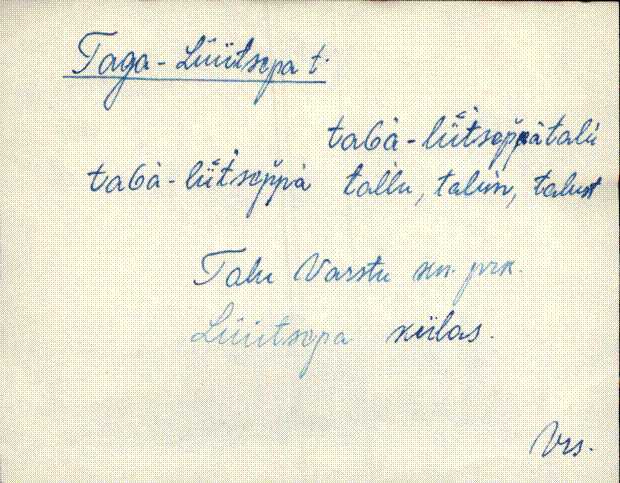 Taga-Lüütsepa t.
taGà-lǖ̀tsep̆pà talù
taGà-lǖ̀tsep̆pà tallu, talun, talust
Talu Varstu kn. prk.
Lüütsepa külas.
Vrs.